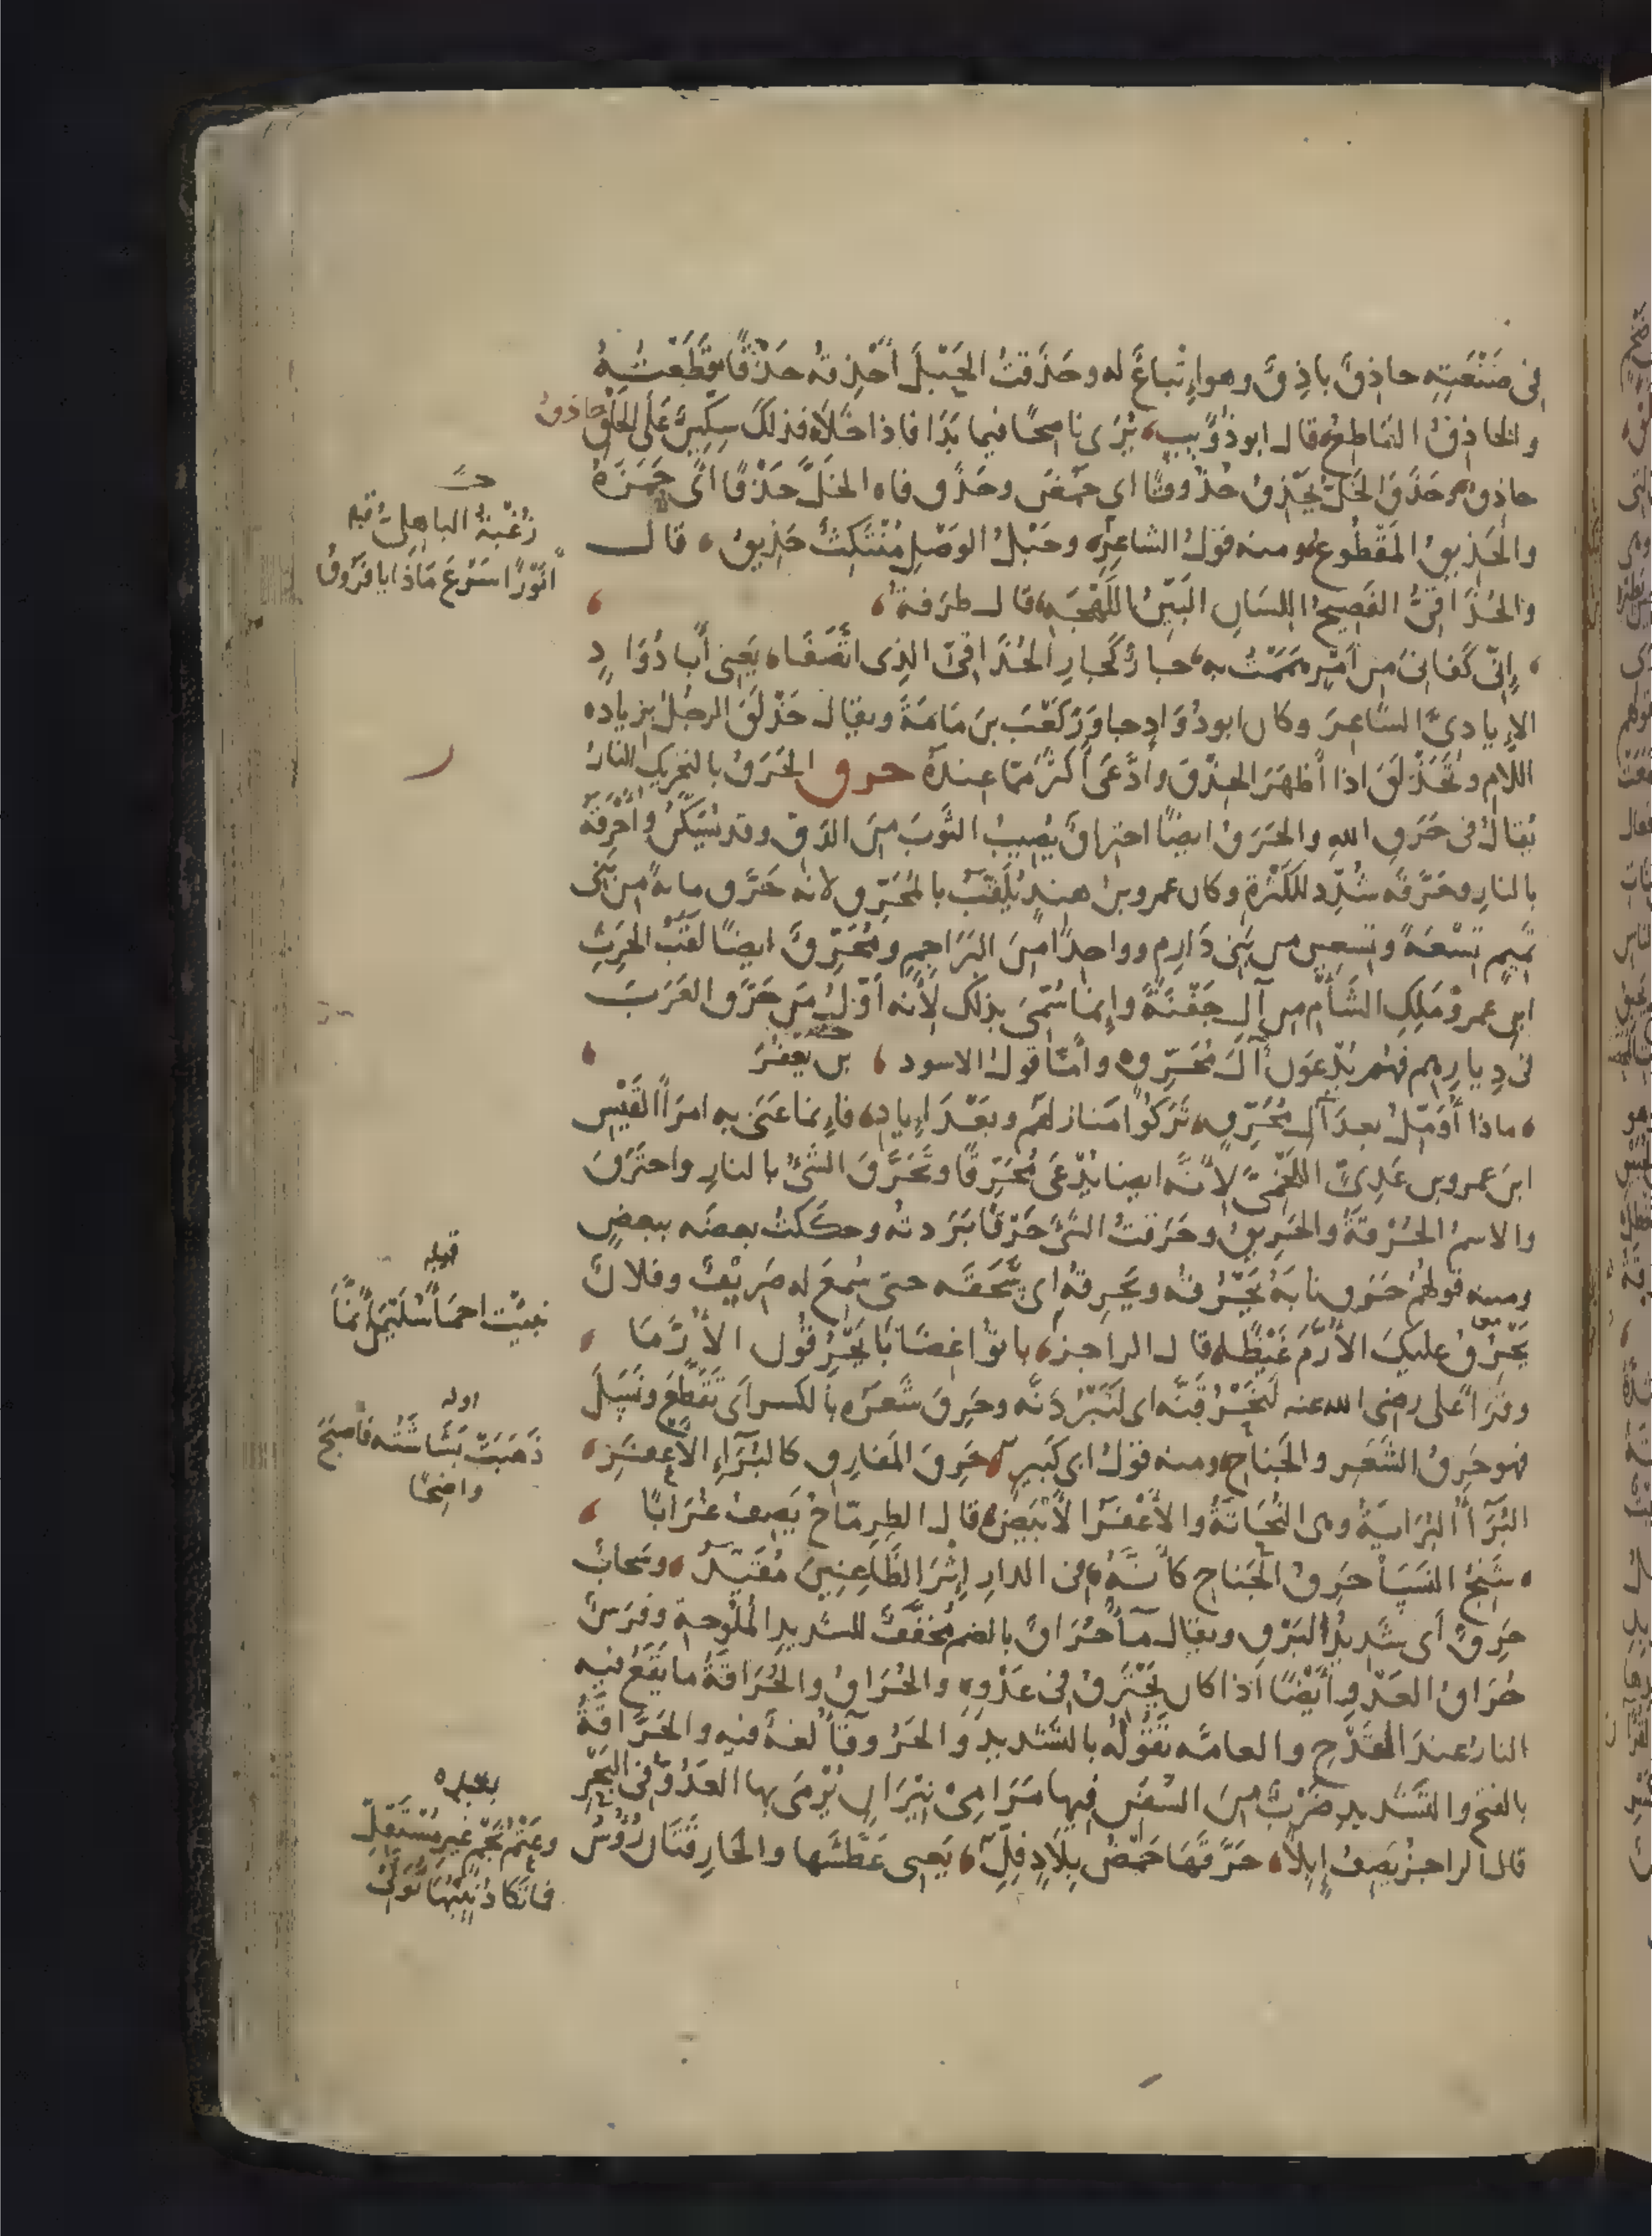 فى صَنْعَتِه حاذِقٌ باذِقٌ وهو إِتْباعٌ له وحَذَقتُ الحَبْلَ أَحْذِقهُ حَذْقًا قَطَعْتُهُ
والحاذِقُ القاطِعُ قال ابو ذُؤَيبٍ، يُرَى ناصِحًا فيما بَدَا فاذا خَلَا، فذلك سِكِّينٌ على الحَلْقِ حاذقُ
حاذِقُ، وحَذَقَ الخَلُّ يَحْذِقُ حُذُوقًا اى حَمُضَ وحَذَق فاه الخَلُّ حَذْقًا اى حَمَزَهُ
والحَذِيقُ المَقْطُوعُ ومنه قولُ الشاعِرِ، وحَبْلُ الوَصْلِ مُنْتَكِثٌ حَذِيقُ، قال
والحُذَاقِىُّ الفَصِيحُ اللِسَانِ البَيِّنُ اللَهْجَةِ، قال طرفة،
، إِنّى كَفانِىَ مِن أَمْرٍ هَمَمْتُ به، جارٌ كَجارِ الحُذَاقِىِّ الذِى اتَّصَفَا، يَعنِى أَبا دُؤَادٍ
الإِيادِىَّ الشاعِرَ وكان ابو دُؤَادٍ جاوَرَ كَعْبَ بنَ مَامَةَ ويقال حَذْلَقَ الرجلُ بزيادة
اللام وتَحَذْلَقَ اذا أَظهَرَ الحِذْقَ وادَّعَى أكثَرَ مِمّا عِندَهُ حرق الحَرَقُ بالتحريك النارُ
يُقالُ فى حَرَقِ اللهِ والحَرَقُ ايضًا احتِراقٌ يُصِيبُ الثَوبَ مِنَ الدَقِّ وقد يُسَكَّنُ وأَحْرَقَهُ
بالنارِ وحَرَّقَه شُدِّد للكَثْرةِ وكان عمرو بن هندٍ يُلَقَّبُ بالمُحَرِّقِ لانه حَرَّق مايةً من بَنِى
تَمِيمٍ تِسْعَةً وتِسعِين من بَنِى دَارِمٍ وواحِدًا مِنَ البَرَاجِمِ ومُحَرِّقٌ ايضًا لَقَبُ الحَرِثِ
ابنِ عمرو مَلِكِ الشَأمِ مِن آلِ جَفْنَةَ وإِنما سُمِّىَ بذلك لأَنه أَوّلُ مَن حَرَّق العَرَبَ
فى دِيارِهِم فهُم يُدْعَون آلَ مُحَرِّقٍ، وأَمّا قولُ الاسود، بن يَعْفُرَ
، ماذا أُؤَمِّلُ بعدَ آلِ مُحَرِّقٍ، تَرَكُوا مَنازِلَهُم وبَعْدَ إِيادِ، فإِنما عَنَى به امرَأَ القَيْس
ابنَ عمرو بن عَدِىٍّ اللَخْمِىَّ لأَنَّه ايضا يُدْعَى مُحَرِّقًا وتَحَرَّقَ الشَىْءُ بالنارِ واحتَرَقَ
والاسمُ الحُرْقةُ والحَرِيقُ وحَرَقتُ الشَىْءَ حَرْقًا بَرَدتهُ وحكَكتُ بعضَه ببعضٍ
ومنه قولُهُم حَرَق نابَهُ يَحْرُقُه ويَحْرِقُهُ اى سَحَقَه حتى سُمِعَ له صَرِيفٌ وفلانٌ
يَحْرُقُ عليكَ الأُرَّمَ غَيْظًا، قال الراجز، باتُوا غِضَابًا يَحْرُقُون الأُرَّمَا
وقرَأَ على رضى الله عنه لَنَحْرُقَنَّه اى لَنَبْرُدَنَّه وحَرِقَ شَعَرُه بالكسر اى تَقَطَّعَ ونَسَلَ
فهو حَرِقُ الشَعَرِ والجَناحِ، ومنه قولُ ابى كَبِيرٍ، حَرِقَ المَفارِقِ كالبُرَاءِ الأَعفَرِ،
البُرَآءُ البُرَايَةُ وهى النُحَاتَةُ والأَعْفَرُ الأَبْيَضُ، قال الطِرِمّاحُ يَصِفُ غُرَابًا
، شَنِجُ النَسَا حَرِقُ الجَناحِ كأَنَّهُ، فى الدارِ إِثْرَ الظاعِنِينَ مُقَيَّدُ، وسَحابٌ
حَرِقٌ أى شَدِيدُ البَرْقِ ويقال مآءٌ حُرَاقٌ بالضم مُخَفَّفٌ للشديدِ المُلُوحةِ وفرَسٌ
حُرَاقُ العَدْوِ أَيْضًا اذا كان يَحْتَرِقُ فى عَدْوِه، والحُرَاقُ والحُرَاقةُ ما يَقَعُ فيه
النارُ عندَ القَدْحِ والعامّه تَقُولُه بالتَشديدِ والحَرُوقآءُ لغةٌ فيه والحَرَّاقةُ
بالفتح والتشديد ضَرْبٌ مِنَ السُفُنِ فِيها مَرَامِى نِيْرَانٍ يُرْمَى بها العَدُوُّ فى البَحْرِ
قال الراجزُ يَصِفُ إِبِلًا، حَرَّقَهَا حَمْضُ بِلَادٍ فِلِّ، يَعنى عَطَّشَها والحَارِقَتَانِ رُؤُوسُ
زُغْبَةُ الباهِلىُّ قبله
أَنَوْرًا سَرْعَ مَاذَا يا فَرُوقُ
قبله
نبِّيت احمَاءَ سُلَيْمَى إِنَّمَا
اوله
ذَهَبَتْ بَشَاشَتُه فأصبَحَ
واضِحًا
بعده
وغَتْمُ نَجْمٍ غيرِ مُسْتَقِلِّ
فما تَكَادُ نِيبُهَا تُوَلِّى